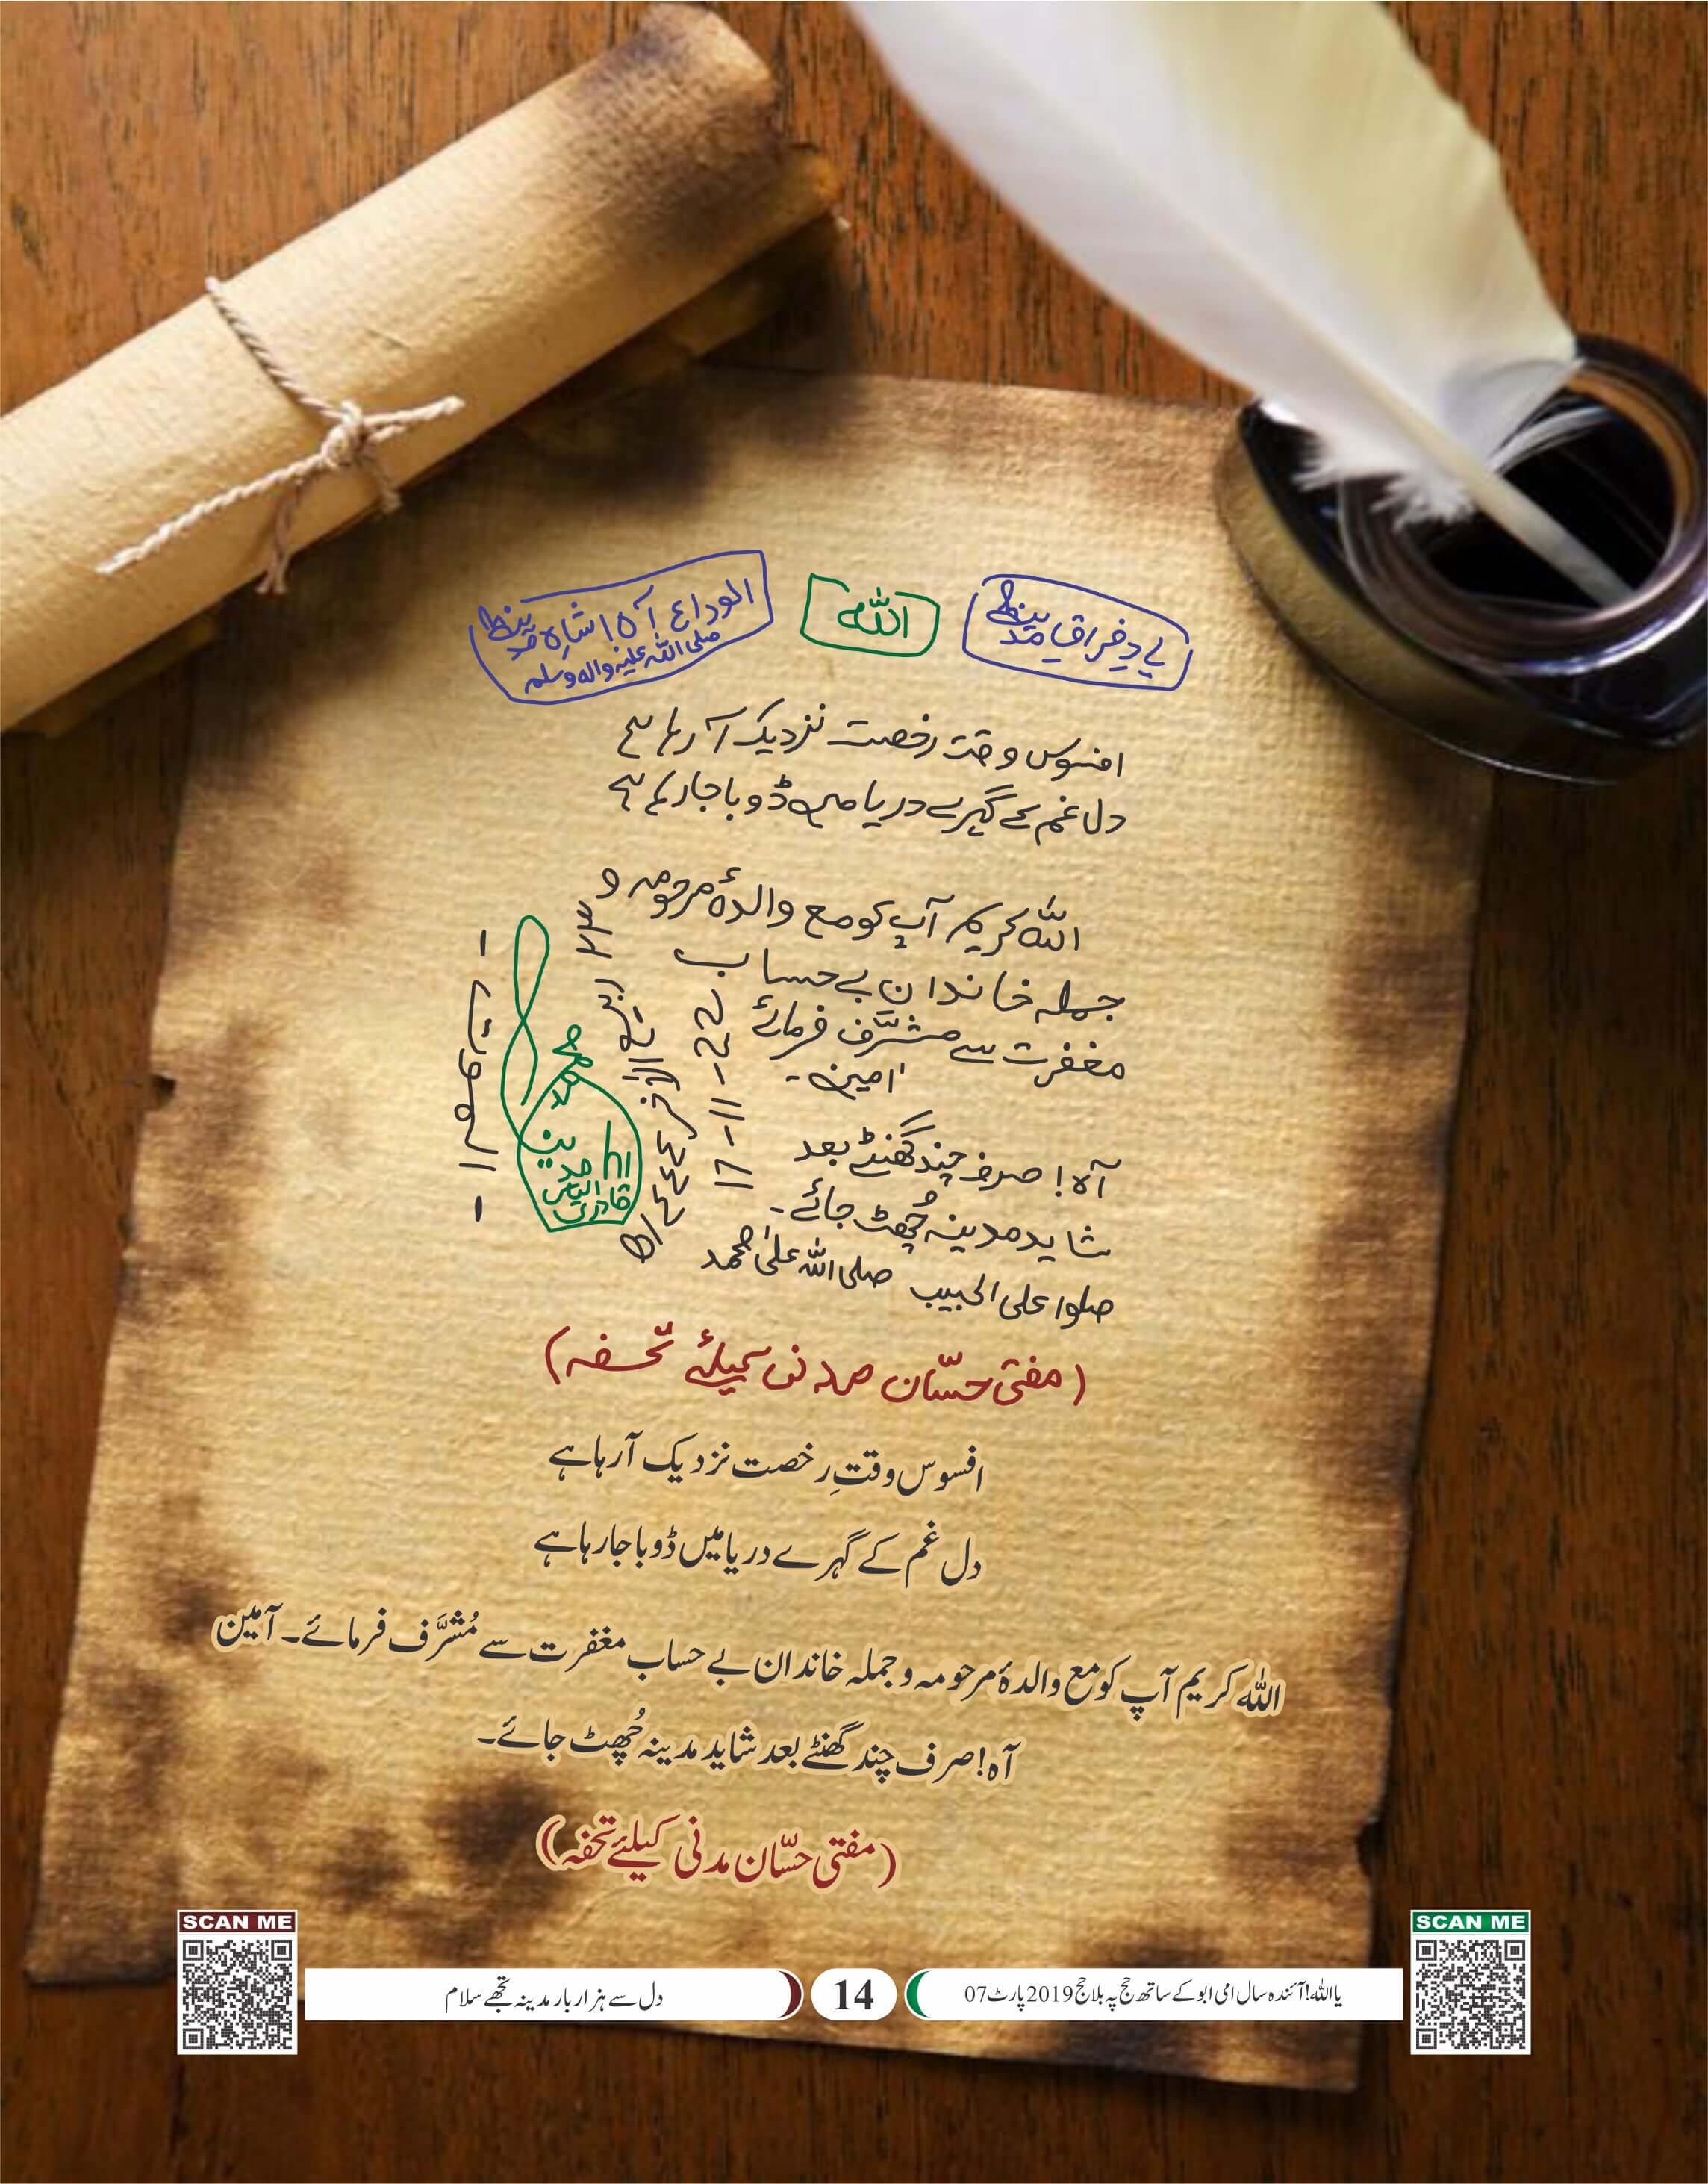 یادِ فراقِ مدینہ
اللہ
الوداع آہ! شاہِ مدینہ
صلی اللہ علیہ والہ وسلم
افسوس وقت رخصت نزدیک آ رہا ہے
دل غم کے گہرے دریا میں ڈوبا جا رہا ہے
اللہ کریم آپ کو مع والدۂ مرحومہ و
جملہ خاندان بے حساب
مغفرت سے مشرَّف فرمائے
امین -
آہ! صرف چند گھنٹے بعد
شاید مدینہ چُھٹ جائے -
صلوا علی الحبیب صلی اللہ علیٰ محمد
۲۳ ربیع الآخر ١٤٤٤ھ
17-11-22
محمد
الیاس
قادری
(مفتی حسّان مدنی کیلئے تحفہ)
افسوس وقتِ رخصت نزدیک آرہا ہے
دل غم کے گہرے دریا میں ڈوبا جارہا ہے
اللہ کریم آپ کو مع والدۂ مرحومہ و جملہ خاندان بے حساب مغفرت سے مُشرَّف فرمائے۔ آمین
آہ! صرف چند گھنٹے بعد شاید مدینہ چُھٹ جائے۔
(مفتی حسّان مدنی کیلئے تحفہ)
SCAN ME
SCAN ME
یااللہ! آئندہ سال امی ابو کے ساتھ حج پہ بلا حج 2019 پارٹ 07
14
دل سے ہزار بار مدینہ تجھے سلام